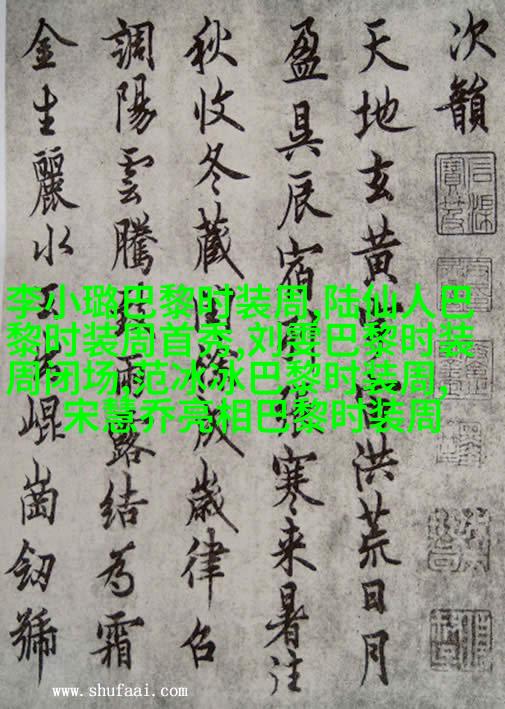 次韻
天地玄黄洪荒日月
盈昃辰宿張寒来暑往
秋收冬藏歲律呂
調陽雲騰雨露結為霜
金生麗水崐崗劒號
李小璐巴黎时装周,陆仙人巴
黎时装周首秀,刘雯巴黎时装
周闭场,范冰冰巴黎时装周,
宋慧乔亮相巴黎时装周
www.shufaai.com